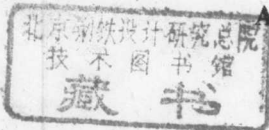 北京钢铁设计研究总院
技术图书馆
藏书